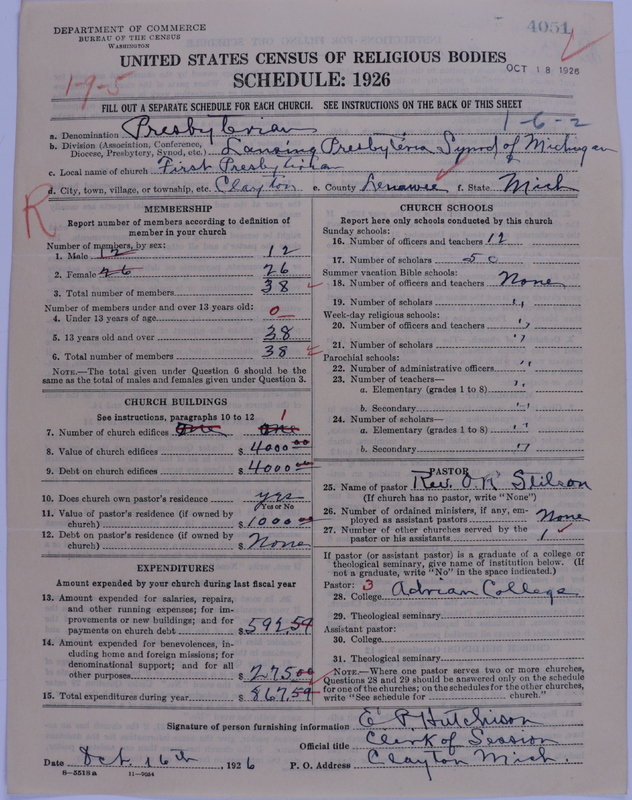 DEPARTMENT OF COMMERCE
BUREAU OF THE CENSUS
WASHINGTON
4051
UNITED STATES CENSUS OF RELIGIOUS BODIES
OCT 18 1926
SCHEDULE: 1926
1-9-5
FILL OUT A SEPARATE SCHEDULE FOR EACH CHURCH. SEE INSTRUCTIONS ON THE BACK OF THIS SHEET
1-6-2
a. Denomination Presbyterian
b. Division (Association, Conference, Diocese, Presbytery, Synod, etc.) Lansing Presbyteria Synod of Michigan
c. Local name of church First Presbyterian
d. City, town, village, or township, etc. Clayton e. County Lenawee f. State Mich
R
MEMBERSHIP
Report number of members according to definition of
member in your church
Number of members, by sex:
1. Male 12 12
2. Female 26 26
3. Total number of members 38
Number of members under and over 13 years old:
4. Under 13 years of age 0
5. 13 years old and over 38
6. Total number of members 38
NOTE.—The total given under Question 6 should be
same as the total of males and females given under Question 3.
CHURCH BUILDINGS
See instructions, paragraphs 10 to 12 1
7. Number of church edifices One One
8. Value of church edifices $ 4000 00
9. Debt on church edifices $ 4000 00
10. Does church own pastor's residence yes
Yes or No
11. Value of pastor's residence (if owned by
church) $ 1000 00
12. Debt on pastor's residence (if owned by
church) $ None
EXPENDITURES
Amount expended by your church during last fiscal year
13. Amount expended for salaries, repairs,
and other running expenses; for im-
provements or new buildings; and for
payments on church debt $ 592.59
14. Amount expended for benevolences, in-
cluding home and foreign missions; for
denominational support; and for all
other purposes $ 275.00
15. Total expenditures during year $ 867.59
CHURCH SCHOOLS
Report here only schools conducted by this church
Sunday schools:
16. Number of officers and teachers 12
17. Number of scholars 50
Summer vacation Bible schools:
18. Number of officers and teachers None
19. Number of scholars "
Week-day religious schools:
20. Number of officers and teachers "
21. Number of scholars "
Parochial schools:
22. Number of administrative officers "
23. Number of teachers—
a. Elementary (grades 1 to 8) "
b. Secondary "
24. Number of scholars—
a. Elementary (grades 1 to 8) "
b. Secondary "
PASTOR
25. Name of pastor Rev. O. R. Stilson
(If church has no pastor, write "None")
26. Number of ordained ministers, if any, em-
ployed as assistant pastors None
27. Number of other churches served by the
pastor or his assistants 1
If pastor (or assistant pastor) is a graduate of a college or
theological seminary, give name of institution below. (If
not a graduate, write "No" in the space indicated.)
Pastor: 3
28. College Adrian College
29. Theological seminary
Assistant pastor:
30. College
31. Theological seminary
NOTE.—Where one pastor serves two or more churches,
Questions 28 and 29 should be answered only on the schedule
for one of the churches; on the schedules for the other churches,
write "See schedule for church."
Signature of person furnishing information E P Hutchison
Official title Clerk of Session
Date Oct. 16th, 1926 P. O. Address Clayton Mich.
8-5518a 11-9054